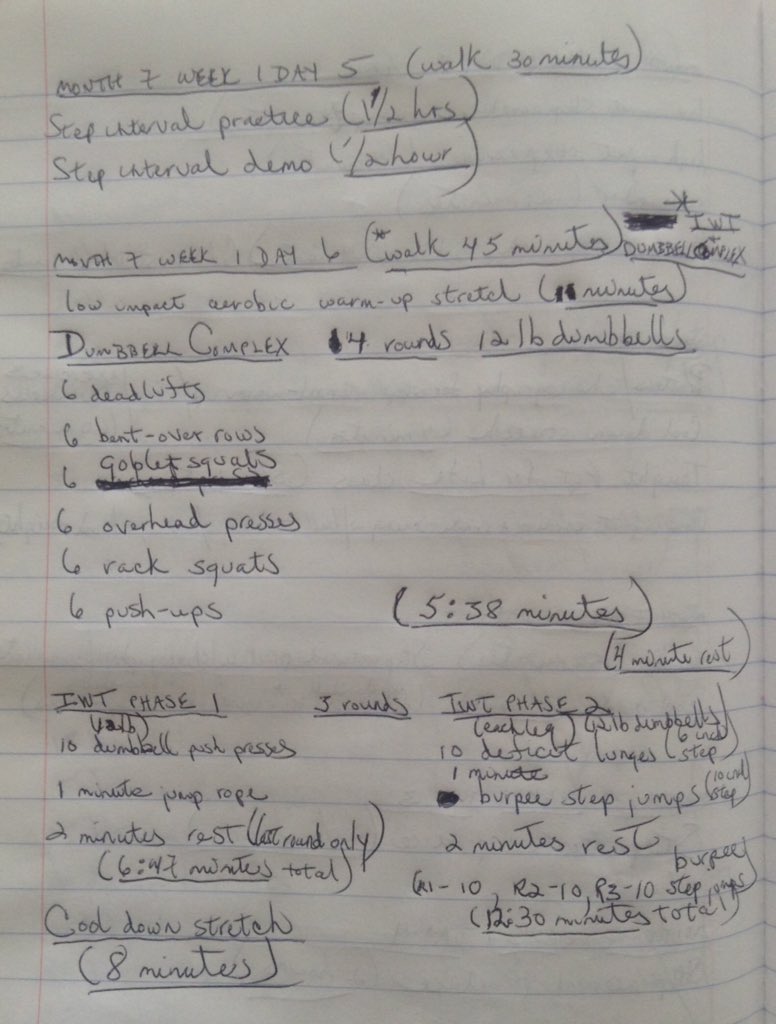 MONTH 7 WEEK 1 DAY 5 (walk 30 minutes)
Step interval practice (1 1/2 hrs)
Step interval demo (1/2 hour)
* IWT
MONTH 7 WEEK 1 DAY 6 (*walk 45 minutes) DUMBBELL COMPLEX
low impact aerobic warm-up stretch (11 minutes)
DUMBBELL COMPLEX 4 rounds 12 lb dumbbells
6 deadlifts
6 bent-over rows
6 goblet squats
6 overhead presses
6 rack squats
6 push-ups (5:38 minutes)
(4 minute rest)
IWT PHASE 1 3 rounds IWT PHASE 2
(each leg) (12 lb dumbbells)
10 dumbbell push presses
10 deficit lunges (6 inch step)
1 minute jump rope
1 minute
burpee step jumps (10 inch step)
2 minutes rest (last round only)
2 minutes rest
(6:47 minutes total)
R1-10, R2-10, R3-10 burpee step jumps
(12:30 minutes total)
Cool down stretch
(8 minutes)